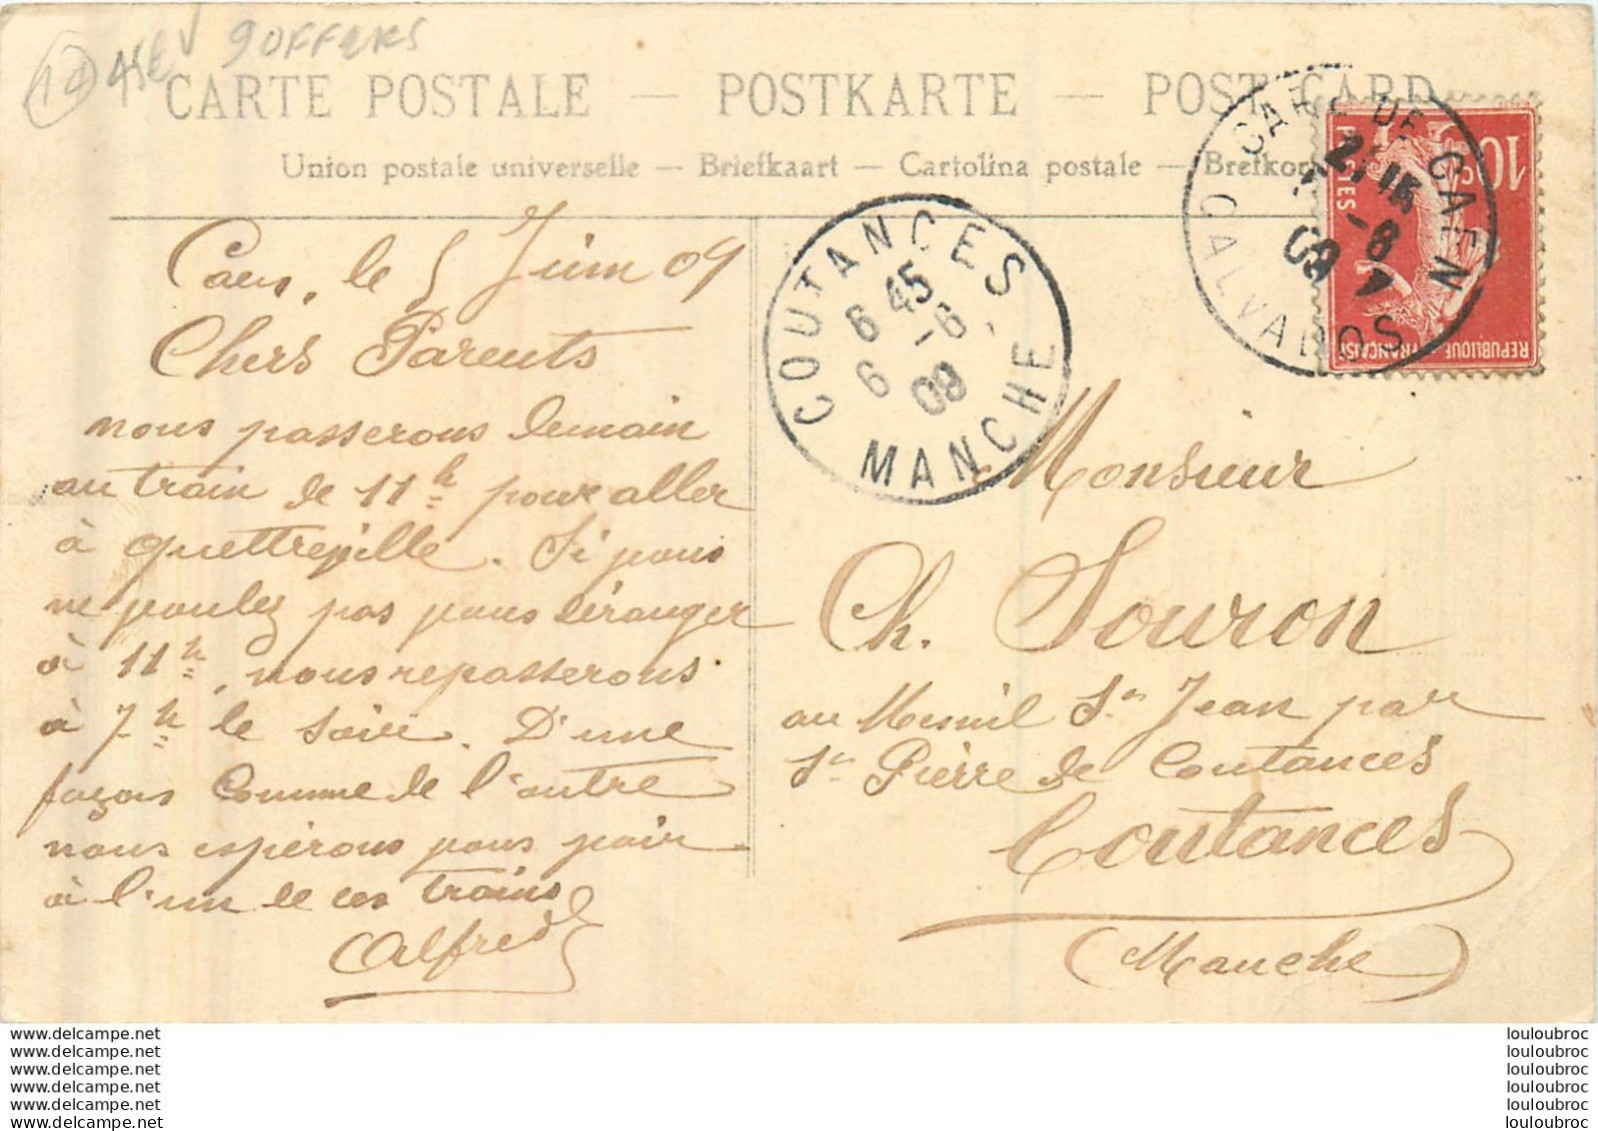 9 OFFERS
CARTE POSTALE — POSTKARTE — POST CARD
Union postale universelle — Briefkaart — Cartolina postale — Brefkor
Caen, le 5 Juin 09
Chers Parents
nous passerons demain
au train de 11h pour aller
à Quettreville. Si vous
ne voulez pas vous déranger
à 11h, nous repasserons
à 7h le soir. D'une
façon comme de l'autre
nous espérons vous voir
à l'un de ces trains
Alfred
COUTANCES
6 45
6 -6
09
MANCHE
GARE DE CAEN
21 15
-6
09
CALVADOS
10c
POSTES
REPUBLIQUE FRANÇAISE
Monsieur
Ch. Souron
au Mesnil St Jean par
St Pierre de Coutances
Coutances
(Manche)
www.delcampe.net
www.delcampe.net
www.delcampe.net
www.delcampe.net
www.delcampe.net
www.delcampe.net
louloubroc
louloubroc
louloubroc
louloubroc
louloubroc
louloubroc